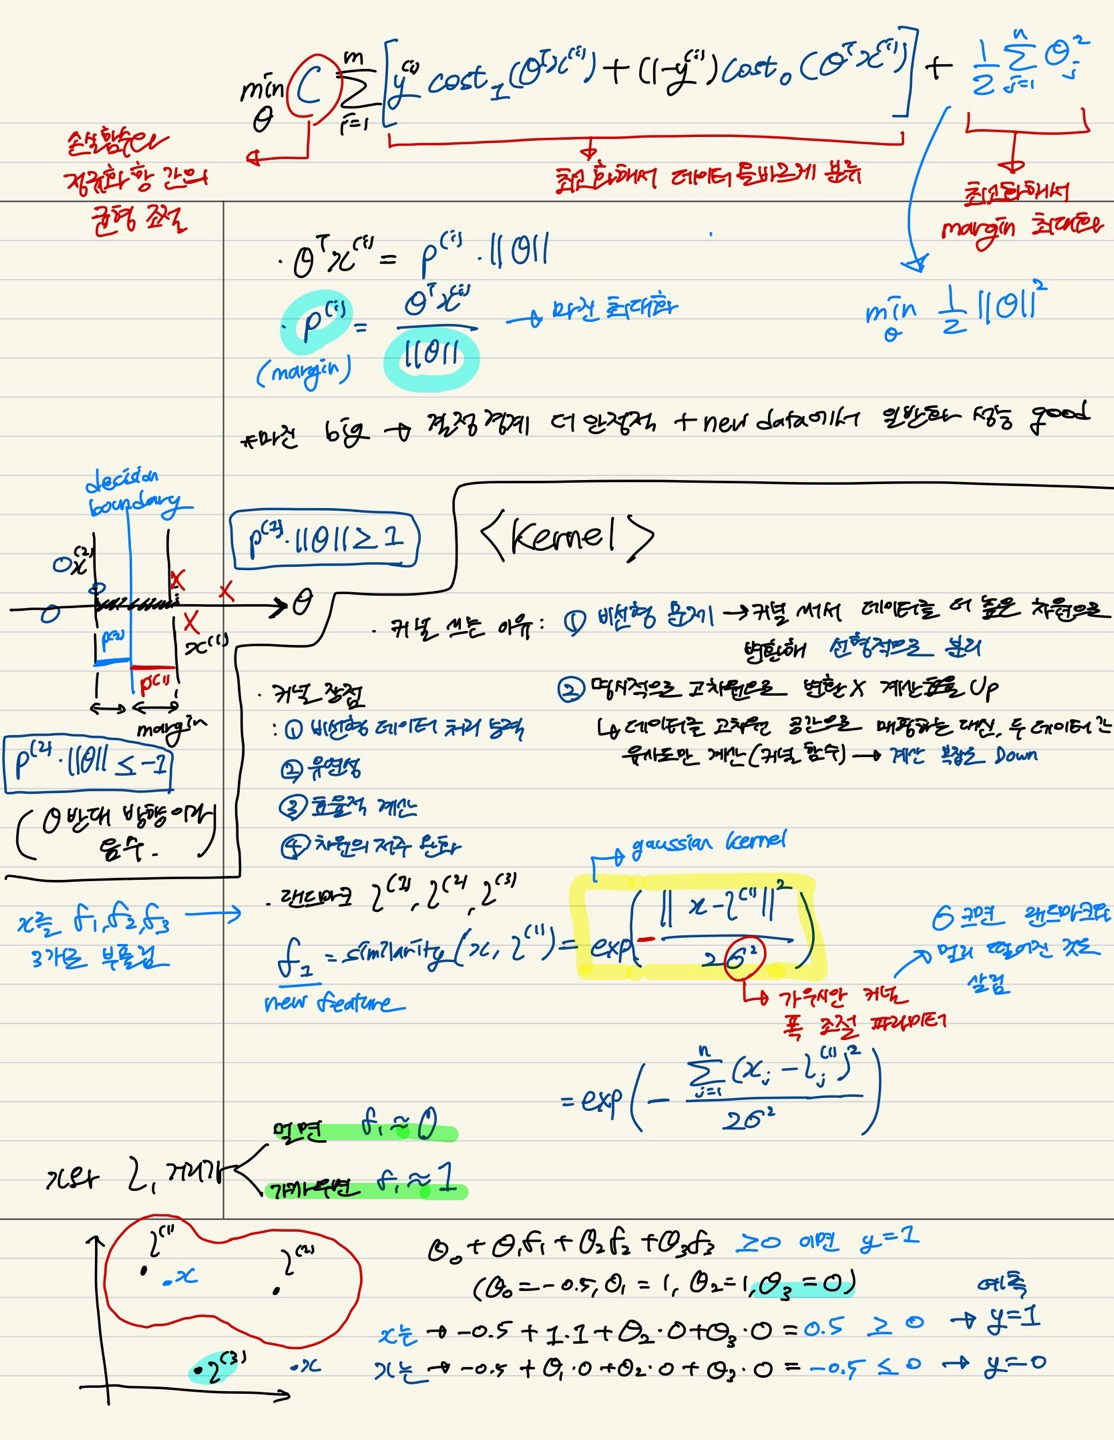 min_θ C Σ_{i=1}^{m} [y^{(i)} cost_1(θ^T x^{(i)}) + (1-y^{(i)}) cost_0(θ^T x^{(i)})] + 1/2 Σ_{j=1}^{n} θ_j^2
손실함수와
정규화 항 간의
균형 조절
최소화해서 데이터 올바르게 분류
최소화해서
margin 최대화
· θ^T x^{(i)} = p^{(i)} · ||θ||
· p^{(i)} = θ^T x^{(i)} / ||θ|| → 마진 최대화
(margin)
min_θ 1/2 ||θ||^2
*마진 big → 결정경계 더 안정적 + new data에서 일반화 성능 good
decision
boundary
x^{(2)}
θ
p^{(2)}
x^{(1)}
p^{(1)}
margin
p^{(1)}·||θ|| ≥ 1
p^{(2)}·||θ|| ≤ -1
(θ 반대 방향이라
음수.)
<Kernel>
· 커널 쓰는 이유: ① 비선형 문제 → 커널 써서 데이터를 더 높은 차원으로
변환해 선형적으로 분리
② 명시적으로 고차원으로 변환 X 계산효율 Up
↳ 데이터를 고차원 공간으로 매핑하는 대신, 두 데이터 간
유사도만 계산(커널 함수) → 계산 복잡도 Down
· 커널 장점
: ① 비선형 데이터 처리 능력
② 유연성
③ 효율적 계산
④ 차원의 저주 완화
· 랜드마크 l^{(1)}, l^{(2)}, l^{(3)}
x를 f_1, f_2, f_3 →
3개로 부풀림
gaussian kernel
f_1 = similarity(x, l^{(1)}) = exp(- ||x-l^{(1)}||^2 / 2σ^2)
new feature
→ 가우시안 커널
폭 조절 파라미터
σ 크면 랜드마크와
멀리 떨어진 것도
살핌
= exp(- Σ_{j=1}^{n} (x_j - l_j^{(1)})^2 / 2σ^2)
x와 l_1 거리가
멀면 f_1 ≈ 0
가까우면 f_1 ≈ 1
l^{(1)}
x
l^{(2)}
l^{(3)}
x
θ_0 + θ_1f_1 + θ_2f_2 + θ_3f_3 ≥0 이면 y=1
(θ_0 = -0.5, θ_1 = 1, θ_2=1, θ_3 = 0)
예측
x는 → -0.5 + 1·1 + θ_2·0 + θ_3·0 = 0.5 ≥ 0 → y=1
x는 → -0.5 + θ_1·0 + θ_2·0 + θ_3·0 = -0.5 ≤ 0 → y=0